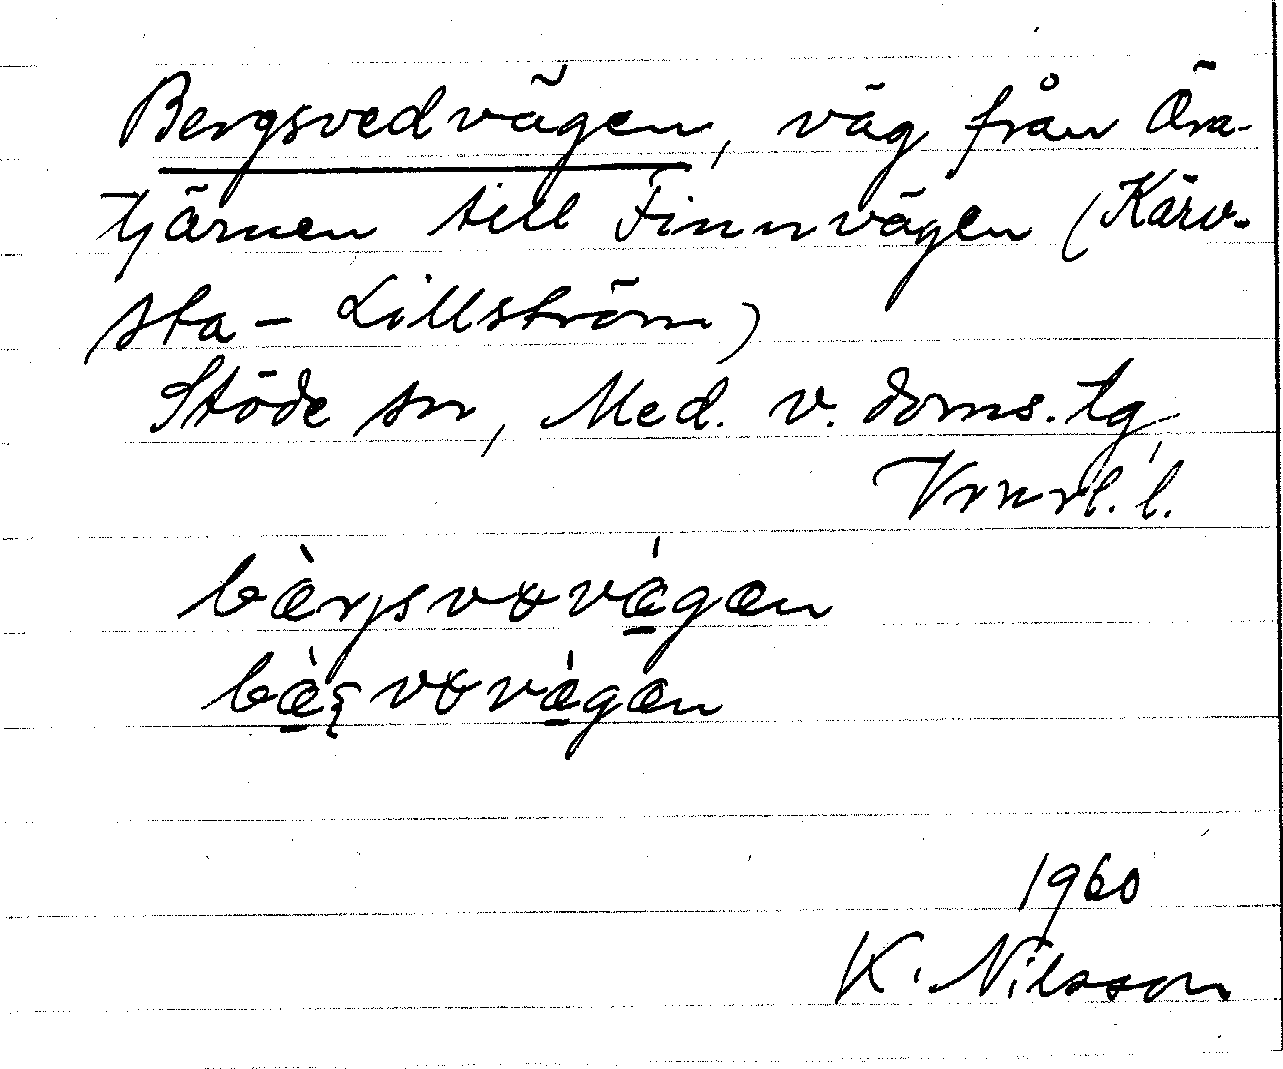 Bergsvedvägen, väg från Öra-
tjärnen till Finnvägen (Kärv-
sta - Lillström)
Stöde sn, Med. v. doms. tg,
Vrnrl. l.
bæ̀rgsvɤvǽgæn
bæ̀ʂvɤvǽgæn
1960
K. Nilsson